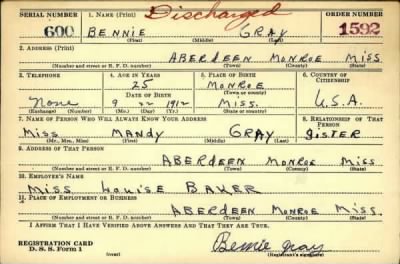 SERIAL NUMBER 1. NAME (Print) Discharged ORDER NUMBER
600 BENNIE GRAY 1592
(First) (Middle) (Last)
2. ADDRESS (Print)
ABERDEEN MONROE MISS.
(Number and street or R. F. D. number) (Town) (County) (State)
3. TELEPHONE 4. AGE IN YEARS 5. PLACE OF BIRTH 6. COUNTRY OF CITIZENSHIP
25 MONROE
DATE OF BIRTH (Town or county)
None 9 22 1912 MISS. U.S.A.
(Exchange) (Number) (Mo.) (Day) (Yr.) (State or country)
7. NAME OF PERSON WHO WILL ALWAYS KNOW YOUR ADDRESS 8. RELATIONSHIP OF THAT PERSON
Miss MANDY GRAY SISTER
(Mr., Mrs., Miss) (First) (Middle) (Last)
9. ADDRESS OF THAT PERSON
ABERDEEN MONROE MISS.
(Number and street or R. F. D. number) (Town) (County) (State)
10. EMPLOYER'S NAME
MISS LOUISE BAKER
11. PLACE OF EMPLOYMENT OR BUSINESS
ABERDEEN MONROE MISS.
(Number and street or R. F. D. number) (Town) (County) (State)
I AFFIRM THAT I HAVE VERIFIED ABOVE ANSWERS AND THAT THEY ARE TRUE.
REGISTRATION CARD
D. S. S. Form 1 (over) Bennie Gray
(Registrant's signature)